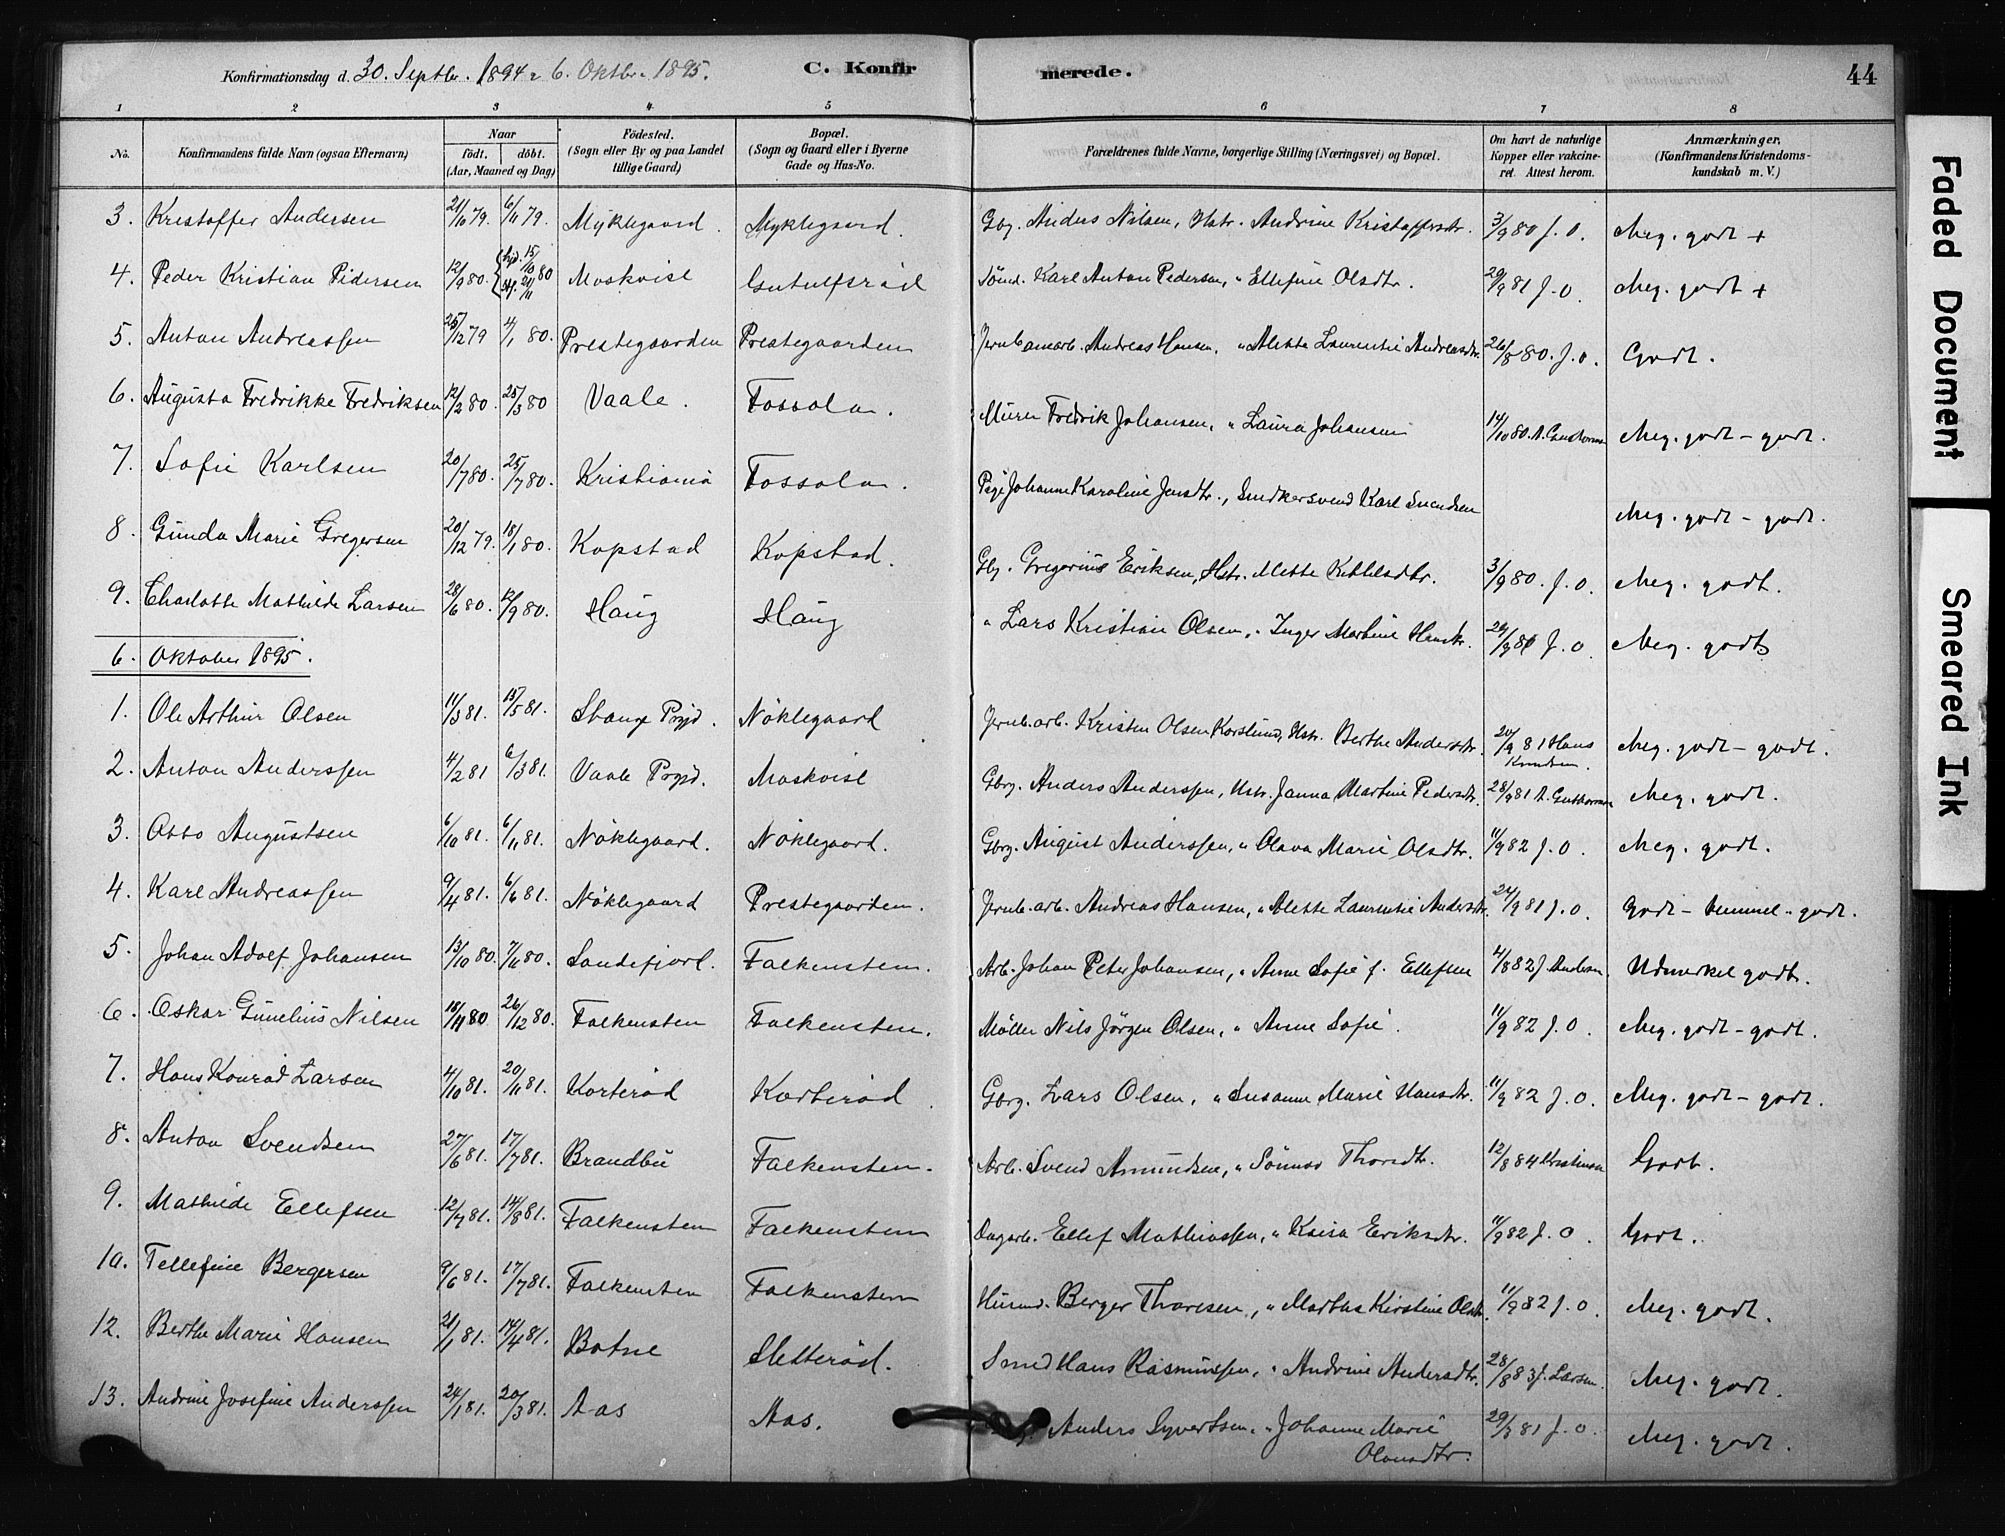 Konfirmationsdag d. 30. Septbr. 1894 & 6. Oktbr. 1895. C. Konfirmerede. 44
1 2 3 4 5 6 7 8
No. Konfirmandens fulde Navn (ogsaa Efternavn) Naar födt. döbt. (Aar, Maaned og Dag) Födested. (Sogn eller By og paa Landet tillige Gaard) Bopæl. (Sogn og Gaard eller i Byerne Gade og Hus-No. Forældrenes fulde Navne, borgerlige Stilling (Næringsvei) og Bopæl. Om havt de naturlige Kopper eller vakcineret. Attest herom. Anmærkninger. (Konfirmandens Kristendomskundskab m. V.)
3. Kristoffer Andersen 21/10 79. 6/11 79. Myklegaard. Myklegaard. Gbg. Anders Nilsen, Hstr. Andrine Kristoffersdtr. 3/9 80 J. O. Meg. godt +
4. Peder Kristian Pedersen 12/9 80. hjd. 15/10 80 stf. 21/11 Moskvist Gutulfsröd Tömd. Karl Anton Pedersen, " Ellefine Olsdtr. 29/9 81 J. O. Meg. godt +
5. Anton Andreassen 25/12 79 4/1 80. Prestegaarden Prestegaarden Jernbanearb. Andreas Hansen, " Alette Laurentie Andreasdtr. 26/8 80. J. O. Godt.
6. Augusta Fredrikke Fredriksen 12/2 80. 25/3 80 Vaale. Fossola. Murer Fredrik Johansen, " Laura Johansen 14/10 80. A. Guthorm Meg. godt - godt.
7. Sofie Karlsen 20/7 80. 25/7 80. Kristiania Fossola. Pige Johanne Karoline Jensdtr., Snedkersvend Karl Svendsen Meg. godt - godt.
8. Gunda Marie Gregersen 20/12 79. 18/1 80. Kopstad Kopstad. Gbg. Gregerius Eriksen, Hstr. Mette Kittilsdtr. 3/9 80. J. O. Meg. godt.
9. Charlotte Mathilde Larsen 28/6 80. 12/9 80. Haug Haug " Lars Kristian Olsen, " Inger Martine Hansdtr. 29/9 81 J. O. Meg. godt
6. Oktober 1895.
1. Ole Arthur Olsen 11/3 81. 15/5 81. Stange Prgjd. Nöklegaard Jernb. arb. Kristen Olsen Korslund, Hstr. Berthe Andersdtr. 20/9 81 Hans Knudsen. Meg. godt - godt.
2. Anton Anderssen 4/2 81 6/3 81. Vaale Prgjd. Moskvist Gbrg. Anders Anderssen, Hstr. Janna Martine Pedersdtr. 28/9 81 A. Guthorm Meg. godt.
3. Otto Augustsen 6/10 81. 6/11 81. Nöklegaard. Nöklegaard. Gbrg. August Anderssen, " Olava Marie Olsdtr. 11/9 82 J. O. Meg. godt.
4. Karl Andreassen 9/4 81. 6/6 81. Nöklegaard Prestegaarden. Jernb. arb. Andreas Hansen, " Alette Laurentie Andersdtr. 24/9 81 J. O. Godt - temmel. godt.
5. Johan Adolf Johansen 13/10 80. 7/11 80. Sandefjord. Falkensten. Arb. Johan Peter Johansen, " Anne Sofie f. Ellefsen 4/8 82 J. Andersen. Udmerket godt.
6. Oskar Gunelius Nilsen 18/11 80 26/12 80. Falkensten Falkensten. Möller Nils Jörgen Olsen, " Anne Sofie. 11/9 82 J. O. Meg. godt - godt.
7. Hans Konrad Larsen 4/10 81. 20/11 81. Korteröd Korteröd. Gbrg. Lars Olsen, " Susanne Marie Hansdtr. 11/9 82 J. O. Meg. godt - godt.
8. Anton Svendsen 27/6 81. 17/7 81. Brandbu Falkensten. Arb. Svend Amundsen, " Sönnov Thoresdtr. 12/8 84 Kristensen Godt.
9. Mathilde Ellefsen 12/7 81. 14/8 81. Falkensten Falkensten Dagarb. Ellef Mathiassen, " Kaisa Eriksdtr. 11/9 82 J. O. Godt.
10. Tellefine Bergersen 8/6 81. 17/7 81. Falkensten Falkensten Husmd. Berger Thoresen, " Marthe Kirstine Olsdtr. 11/9 82 J. O. Meg. godt.
12. Berthe Marie Hansen 21/1 81. 14/4 81. Botne Sletteröd. Smed Hans Rasmussen, " Andrine Andersdtr. 28/8 83 J. Larsen. Meg. godt.
13. Andrine Josefine Anderssen 24/1 81. 20/3 81. Aas Aas. Anders Syvertsen, " Johanne Marie Olausdtr. 29/3 81 J. O. Meg. godt.
Faded Document
Smeared Ink